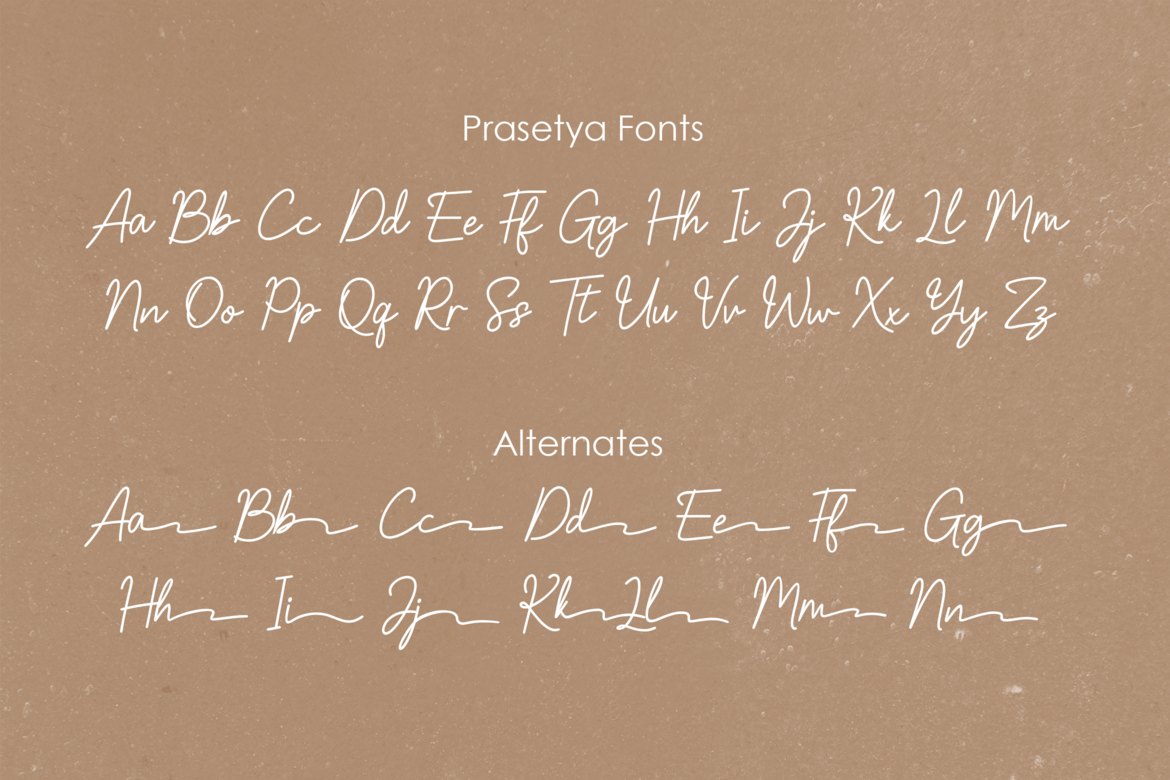 Prasetya Fonts
Aa Bb Cc Dd Ee Ff Gg Hh Ii Jj Kk Ll Mm
Nn Oo Pp Qq Rr Ss Tt Uu Vv Ww Xx Yy Zz
Alternates
Aa Bb Cc Dd Ee Ff Gg
Hh Ii Jj Kk Ll Mm Nn